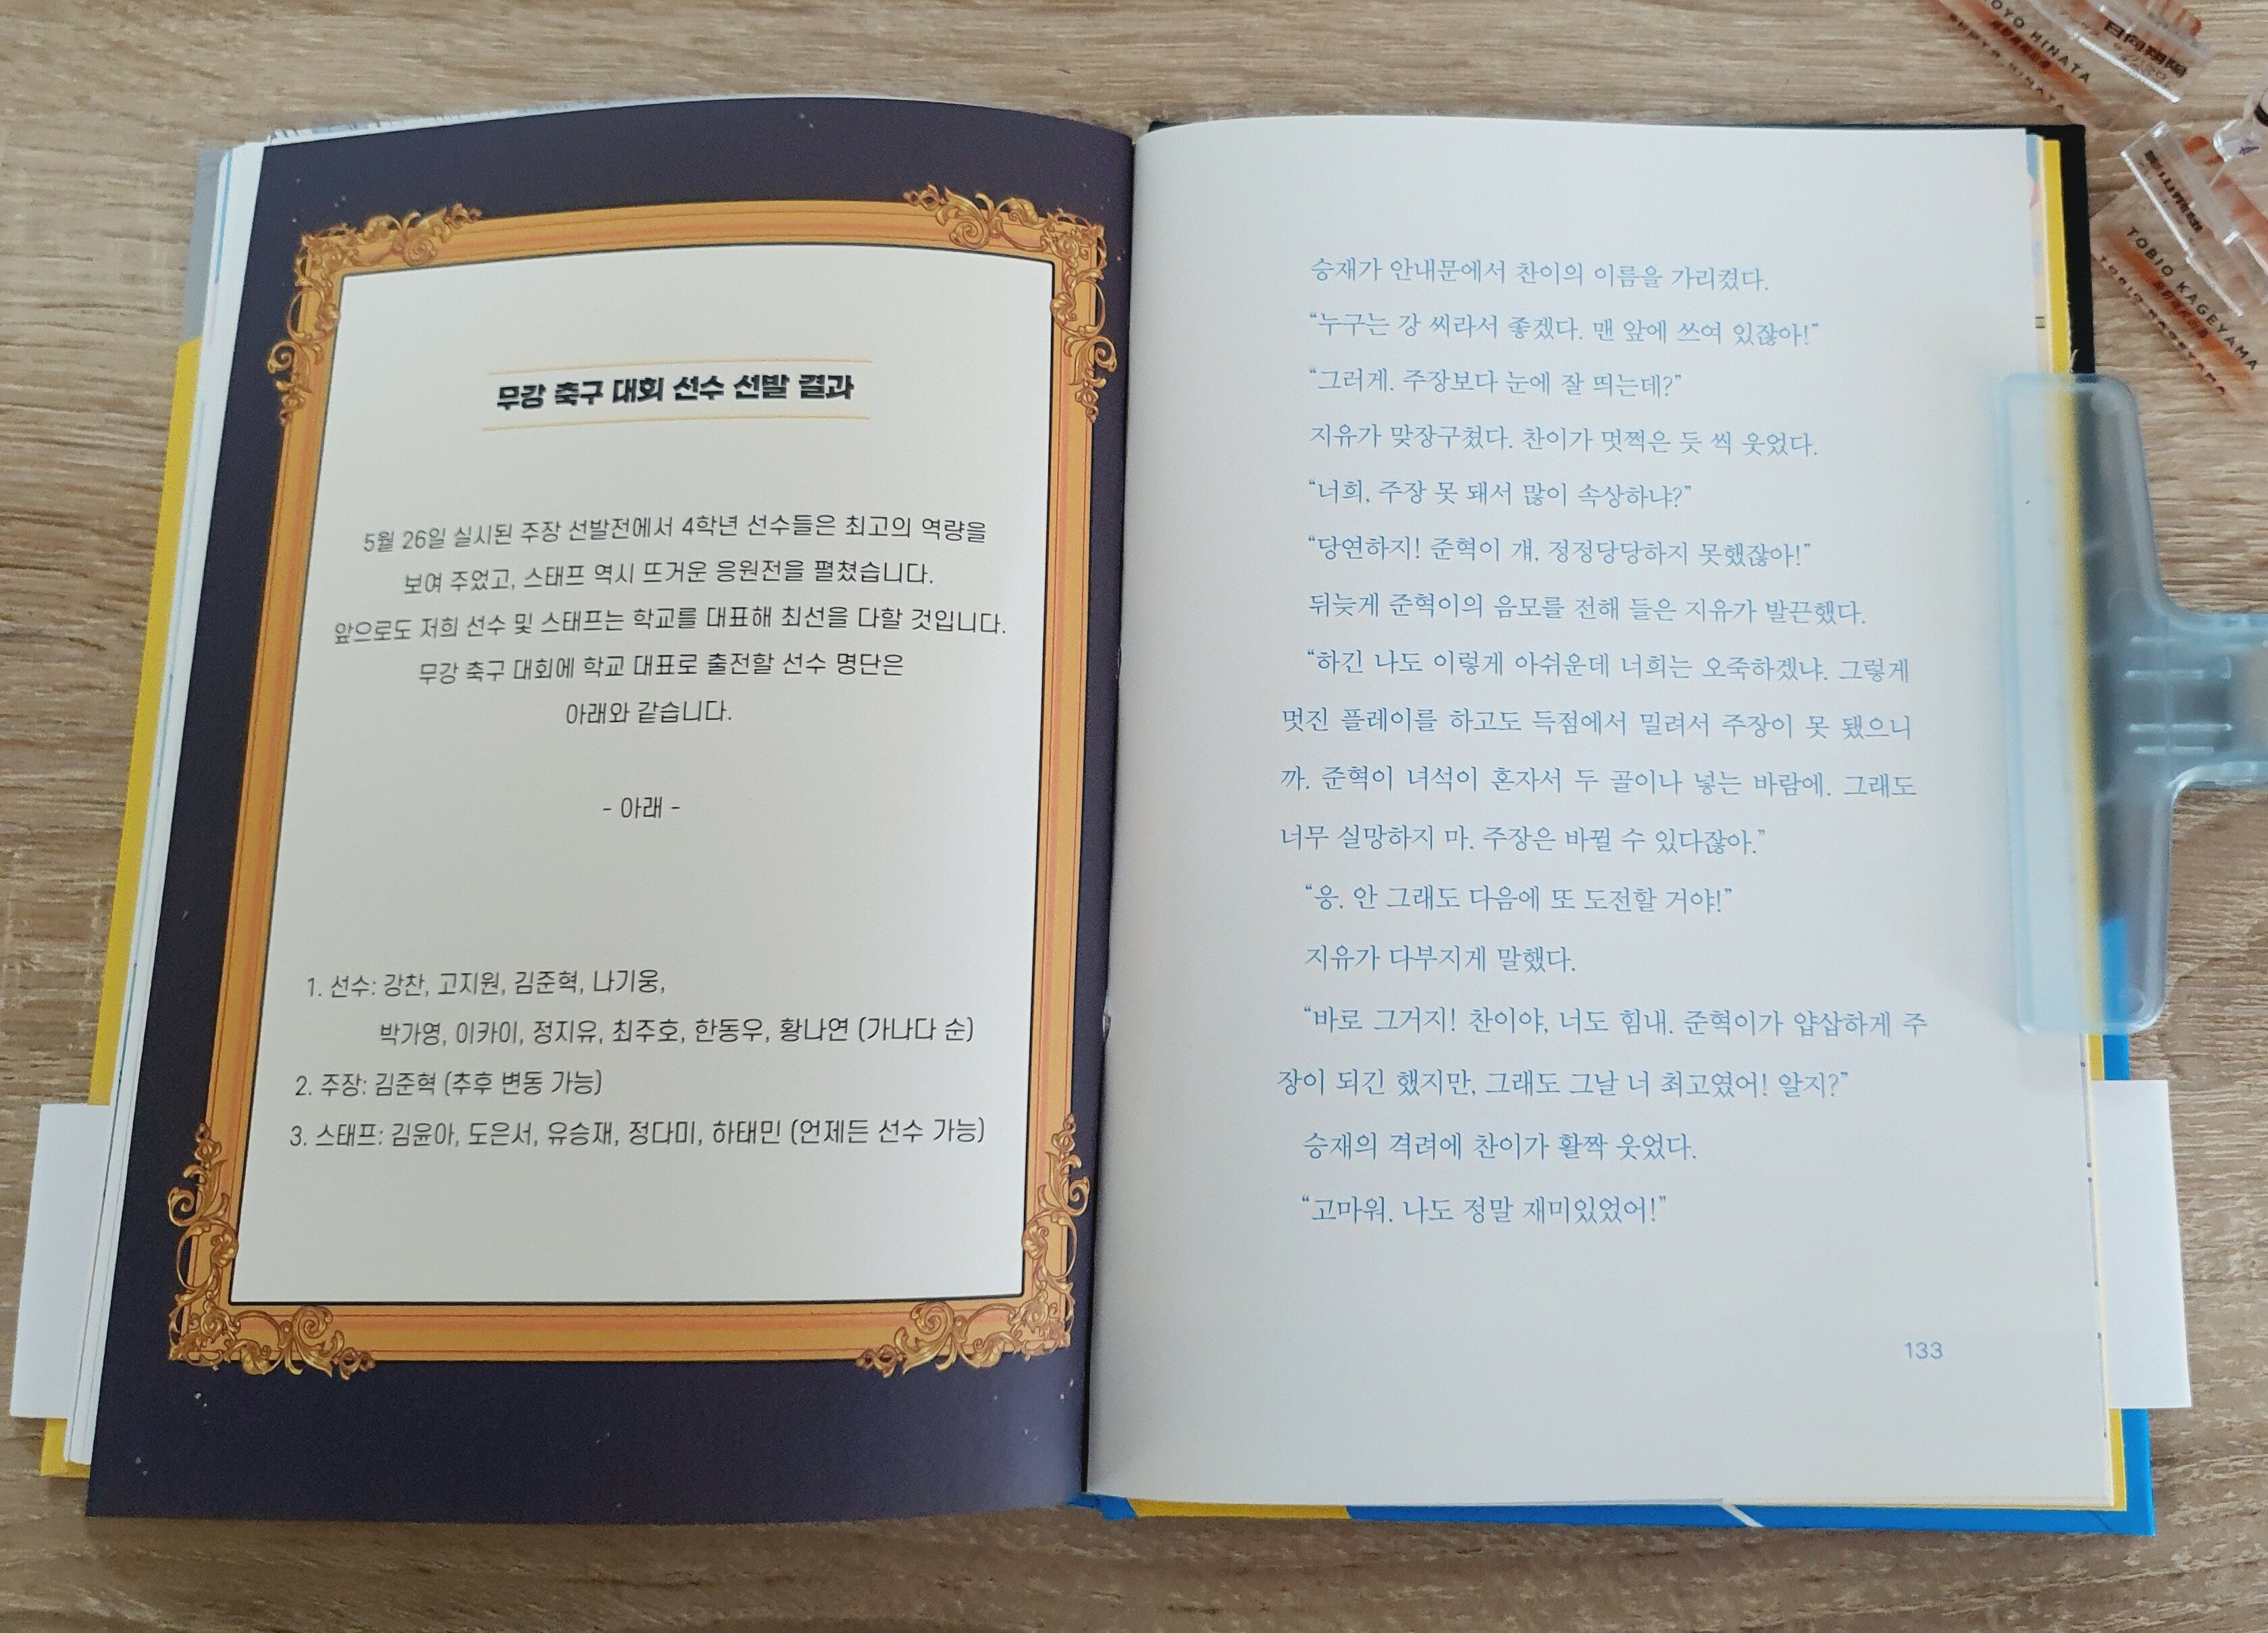 무강 축구 대회 선수 선발 결과
5월 26일 실시된 주장 선발전에서 4학년 선수들은 최고의 역량을
보여 주었고, 스태프 역시 뜨거운 응원전을 펼쳤습니다.
앞으로도 저희 선수 및 스태프는 학교를 대표해 최선을 다할 것입니다.
무강 축구 대회에 학교 대표로 출전할 선수 명단은
아래와 같습니다.
- 아래 -
1. 선수: 강찬, 고지원, 김준혁, 나기웅,
박가영, 이카이, 정지유, 최주호, 한동우, 황나연 (가나다 순)
2. 주장: 김준혁 (추후 변동 가능)
3. 스태프: 김윤아, 도은서, 유승재, 정다미, 하태민 (언제든 선수 가능)
승재가 안내문에서 찬이의 이름을 가리켰다.
“누구는 강 씨라서 좋겠다. 맨 앞에 쓰여 있잖아!”
“그러게. 주장보다 눈에 잘 띄는데?”
지유가 맞장구쳤다. 찬이가 멋쩍은 듯 씩 웃었다.
“너희, 주장 못 돼서 많이 속상하냐?”
“당연하지! 준혁이 걔, 정정당당하지 못했잖아!”
뒤늦게 준혁이의 음모를 전해 들은 지유가 발끈했다.
“하긴 나도 이렇게 아쉬운데 너희는 오죽하겠냐. 그렇게
멋진 플레이를 하고도 득점에서 밀려서 주장이 못 됐으니
까. 준혁이 녀석이 혼자서 두 골이나 넣는 바람에. 그래도
너무 실망하지 마. 주장은 바뀔 수 있다잖아.”
“응. 안 그래도 다음에 또 도전할 거야!”
지유가 다부지게 말했다.
“바로 그거지! 찬이야, 너도 힘내. 준혁이가 얍삽하게 주
장이 되긴 했지만, 그래도 그날 너 최고였어! 알지?”
승재의 격려에 찬이가 활짝 웃었다.
“고마워. 나도 정말 재미있었어!”
133
HINATA
日向翔陽
TOBIO KAGEYAMA